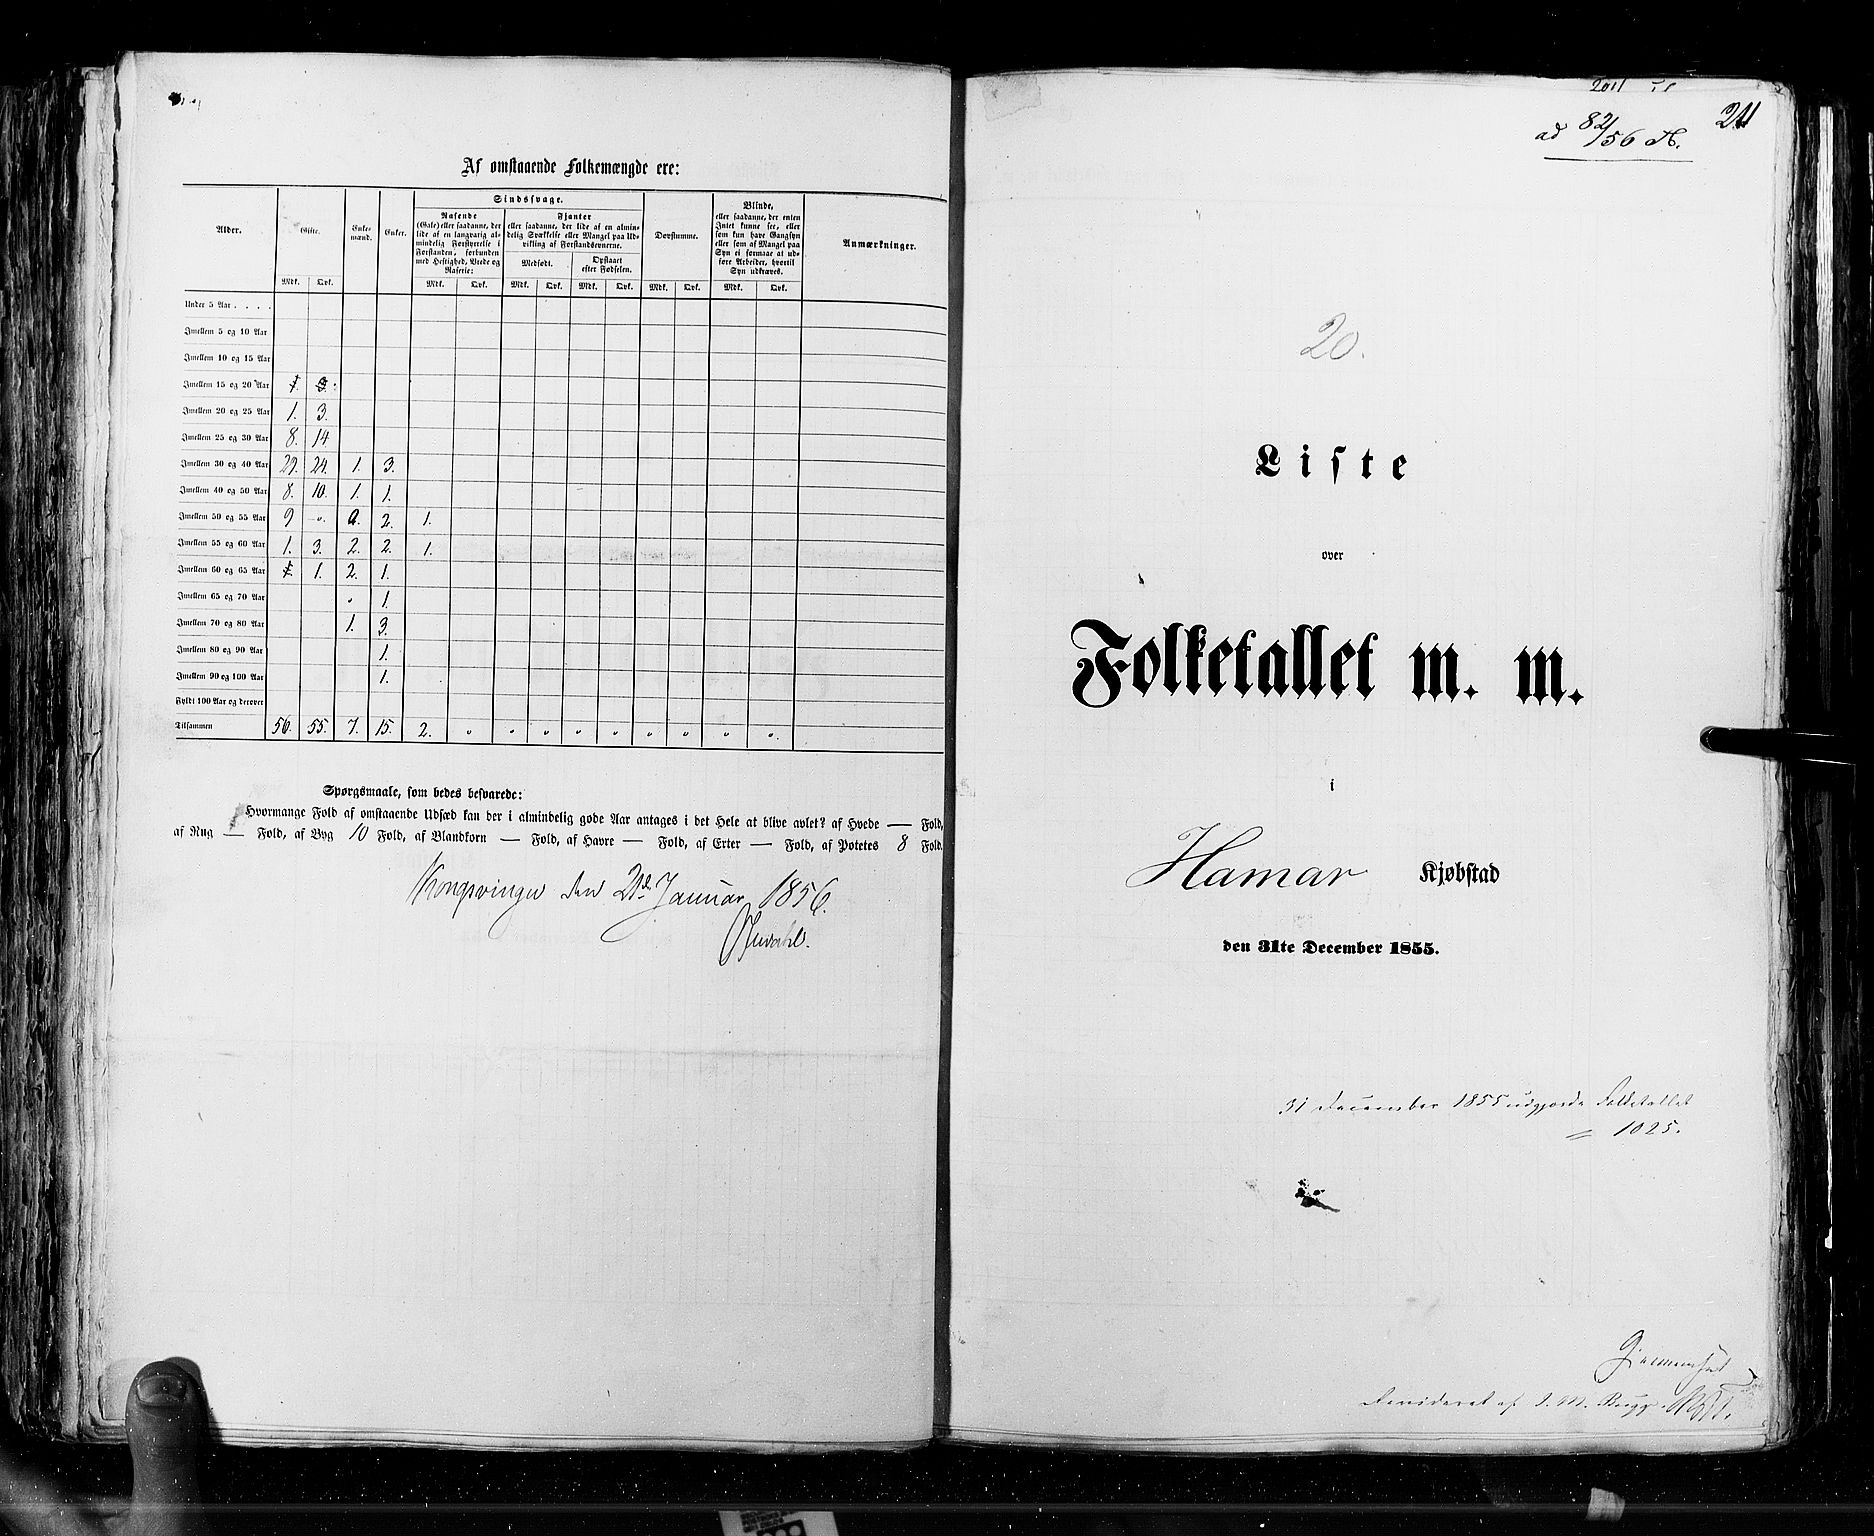 Af omstaaende Folkemængde ere:
Alder. Gifte. Enke-mænd. Enker. Sindssvage. Døvstumme. Blinde, Anmærkninger.
Rasende
(Gale) eller saadanne, der
lide af en langvarig al-
mindelig Forstyrrelse i
Forstanden, forbunden
med Heftighed, Vrede og
Raserie:
Fjanter
eller saadanne, der lide af en almin-
delig Svækkelse eller Mangel paa Ud-
vikling af Forstandsevnerne.
Medfødt. Opstaaet
efter Fødselen.
eller saadanne, der enten
Intet kunne see, eller
som kun have Gangsyn
eller som af Mangel paa
Syn ei formaae at ud-
føre Arbeider, hvortil
Syn udkræves.
Mdk. Qvk. Mdk. Qvk. Mdk. Qvk. Mdk. Qvk. Mdk. Qvk. Mdk. Qvk.
Under 5 Aar . . . .
Imellem 5 og 10 Aar
Imellem 10 og 15 Aar
Imellem 15 og 20 Aar
Imellem 20 og 25 Aar 1. 3.
Imellem 25 og 30 Aar 8. 14
Imellem 30 og 40 Aar 29. 24. 1. 3.
Imellem 40 og 50 Aar 8. 10. 1. 1.
Imellem 50 og 55 Aar 9 " 2. 1.
Imellem 55 og 60 Aar 1. 3. 2. 2. 1.
Imellem 60 og 65 Aar 1. 2. 1.
Imellem 65 og 70 Aar " 1.
Imellem 70 og 80 Aar 1. 3.
Imellem 80 og 90 Aar 1.
Imellem 90 og 100 Aar 1.
Fyldt 100 Aar og derover
Tilsammen 56. 55. 7. 15. 2. " " " " " " " " "
Spørgsmaale, som bedes besvarede:
Hvormange Fold af omstaaende Udsæd kan der i almindelig gode Aar antages i det Hele at blive avlet? af Hvede — Fold,
af Rug — Fold, af Byg 10 Fold, af Blandkorn — Fold, af Havre — Fold, af Erter — Fold, af Potetes 8 Fold.
Kongsvinger den 21de Januar 1856.
2011
ad 82/56 A.
211
20.
Liste
over
Folketallet m. m.
i
Hamar Kjøbstad
den 31te December 1855.
31 December 1855 udgjorde Folketallet
= 1025.
Gjennemseet
Revideret af